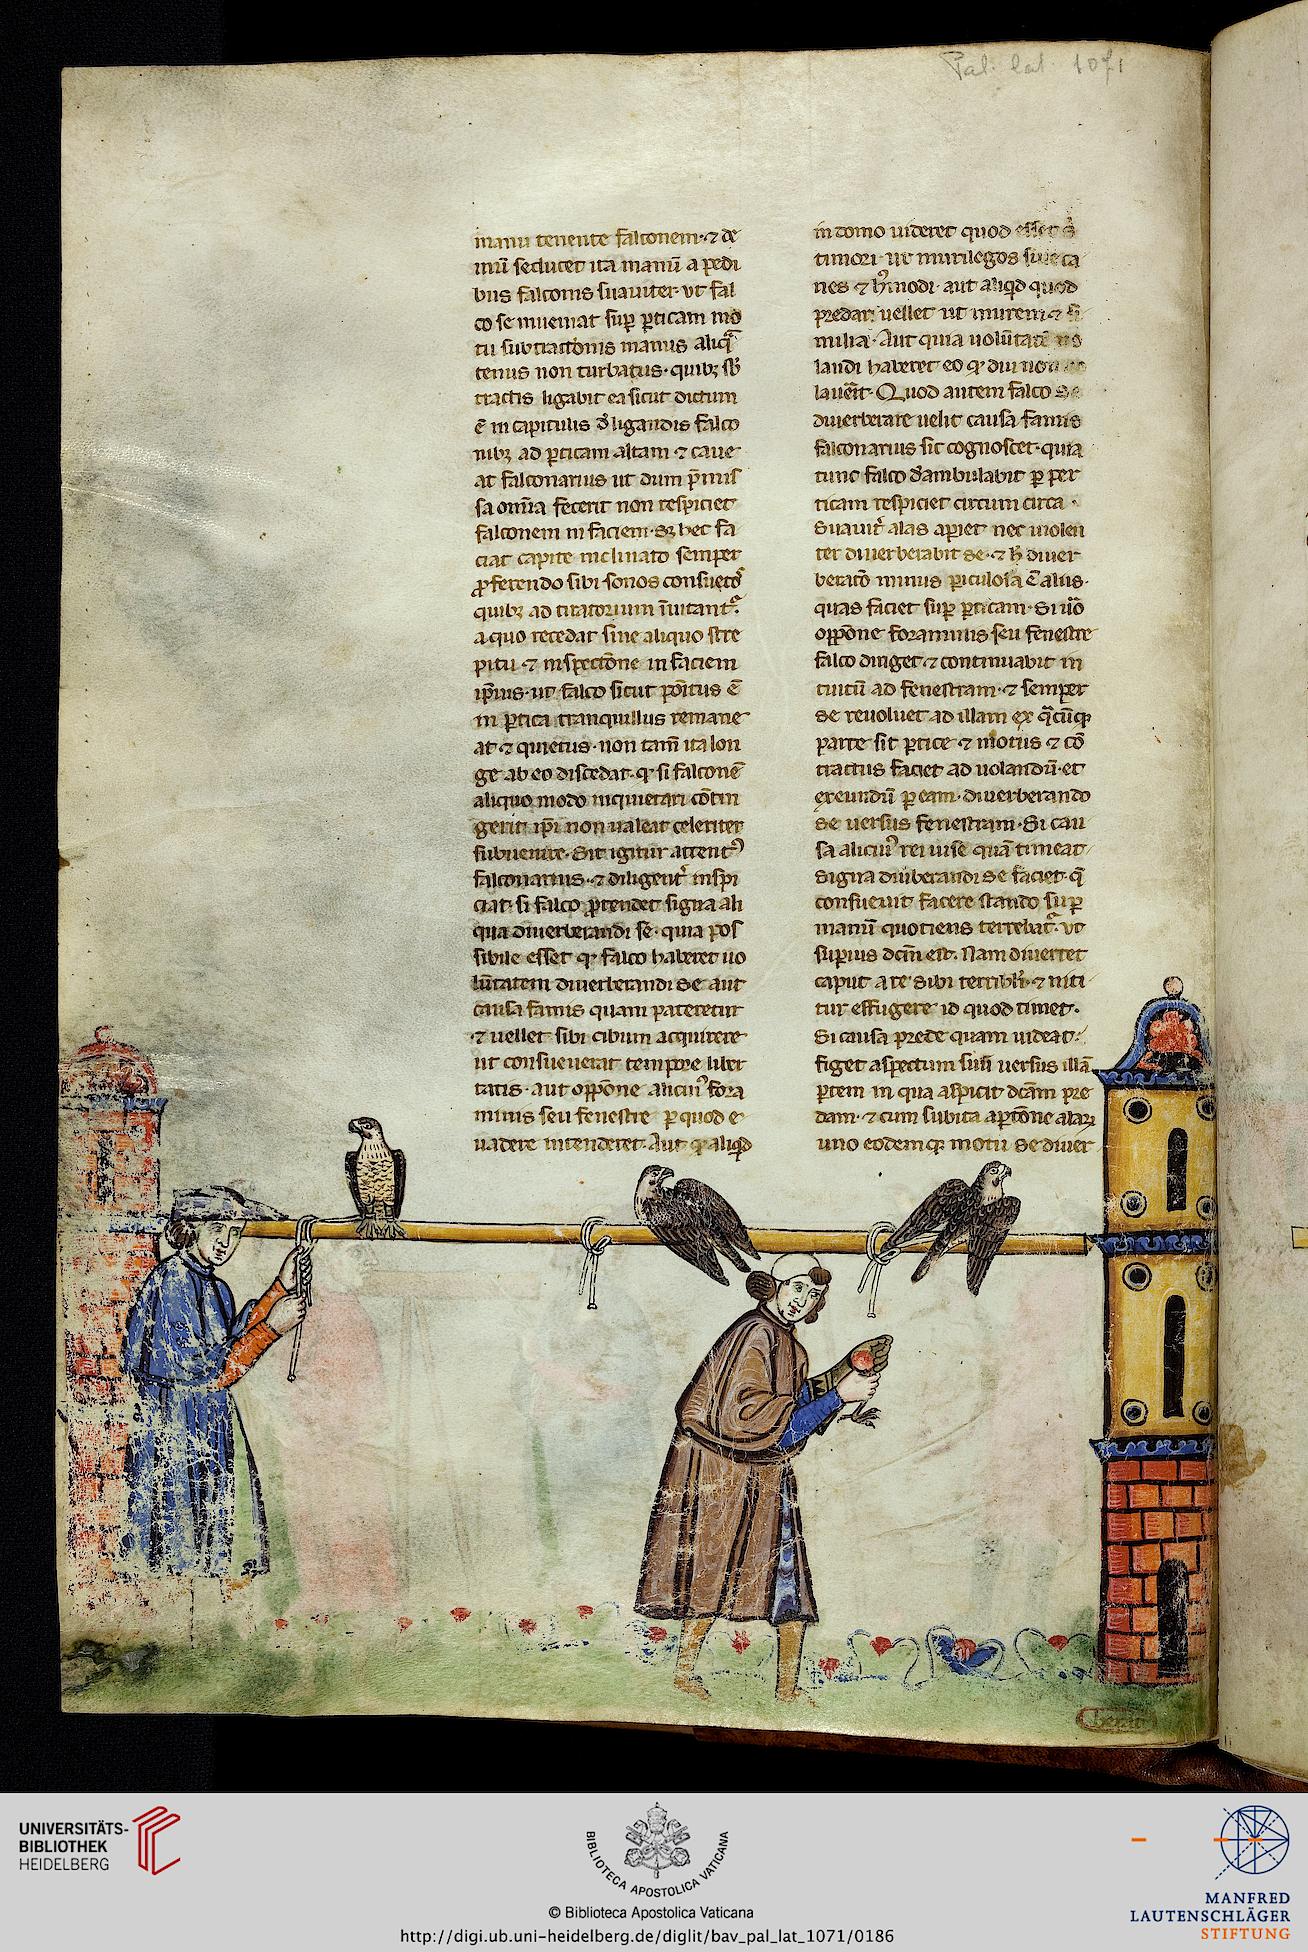 Pal. lat. 1071
manu tenente falconem · ⁊ de
inū seducet ita manū a pedi
bus falconis suauiter · ut fal
co se inueniat sup̄ ꝑticam mo
tu subtractōnis manus aliq̄
tenus non turbatus · quibꝫ sb̄
tractis ligabit ea sicut dictum
ē in capitulis d̄ ligandis falco
nibꝫ ad ꝑticam altam · ⁊ caue
at falconarius ut dum p̄mis
sa om̄ia fecerit non respiciet
falconem in faciem · sꝫ hec fa
ciat capite inclinato semper
ꝓferendo sibi sonos consuetos
quibꝫ ad tiratorium īuitant᷑ ·
a quo recedat sine aliquo stre
pitu · ⁊ inspectōne in faciem
ip̄ius · ut falco sicut poītus ē
in ꝑtica tranquillus remane
at · ⁊ quietus · non tam̄ ita lon
ge ab eo discedat · ꝙ si falconē
aliquo modo inquietari cōtin
gerit ip̄i non ualeat celeriter
subuenire · Sit igitur attent᷒
falconarius · ⁊ diligent᷑ inspi
ciat · si falco ꝓtendet signa ali
qua diuerberandi se · quia pos
sibile esset ꝙ falco haberet uo
lūtatem diuerberandi se aut
causa famis quam pateretur
· ⁊ uellet sibi cibum acquirere
ut consueuerat tempore liber
tatis · aut oppōne alicui᷒ fora
minis seu fenestre ꝑ quod e
uadere intenderet · Aut ꝙ aliqd
in domo uideret quod esset s
timori · ut murilegos siue ca
nes ⁊ hꝰmodi · aut aliqd quod
predari uellet ut murem ⁊ si
milia · Aut quia uolūtatē uo
landi haberet eo ꝙ diu non uo
lauerit · Quod autem falco se
diuerberare uelit causa famis
falconarius sic cognoscet · quia
tunc falco d̄ambulabit ꝑ per
ticam respiciet circum circa ·
Suauit᷑ alas aperiet nec uiolen
ter diuerberabit se · ⁊ h̄ diuer
beratō minus ꝑiculosa ē aliis ·
quas faciet sup̄ ꝑticam · Si uō
oppōne foraminis seu fenestre
falco diriget ⁊ continuabit in
tuitū ad fenestram · ⁊ semper
se reuoluet ad illam ex q̄cūqꝫ
parte sit ꝑtice · ⁊ motus ⁊ cō
tractus faciet ad uolandū · et
exeundū ꝑ eam · diuerberando
se uersus fenestram · Si cau
sa alicui᷒ rei uise quā timeat
signa diuīberandi se faciet · q̄
consueuit facere stando sup̄
manū quotiens terrebat᷑ · ut
superius dcm̄ est · Nam diuertet
caput a re sibi terribli · ⁊ niti
tur effugere id quod timet ·
Si causa prede quam uideat ·
figet aspectum suū uersus illā
ꝑtem in qua aspicit dcām pre
dam · ⁊ cum subita aꝑtōne alaꝝ
uno eodemqꝫ motu se diuer
UNIVERSITÄTS-
BIBLIOTHEK
HEIDELBERG
BIBLIOTECA APOSTOLICA VATICANA
© Biblioteca Apostolica Vaticana
http://digi.ub.uni-heidelberg.de/diglit/bav_pal_lat_1071/0186
MANFRED
LAUTENSCHLÄGER
STIFTUNG